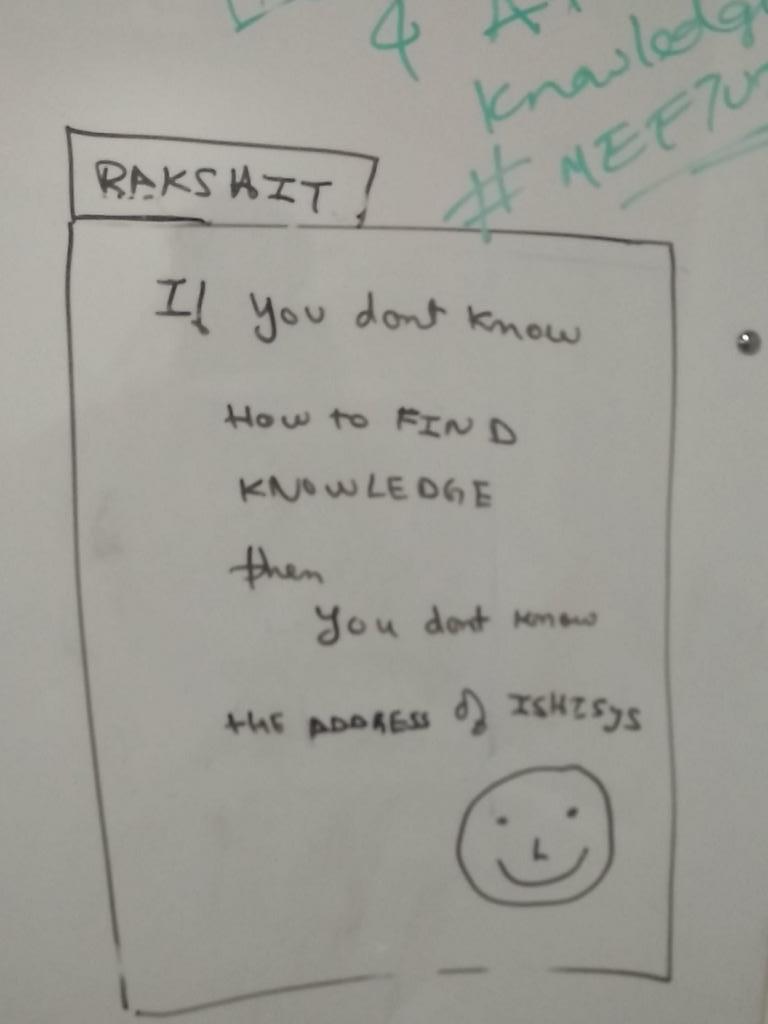 &
knowledg
#
RAKSHIT
If you dont know
How to FIND
KNOWLEDGE
then
you dont know
the ADDRESS of ISHISYS